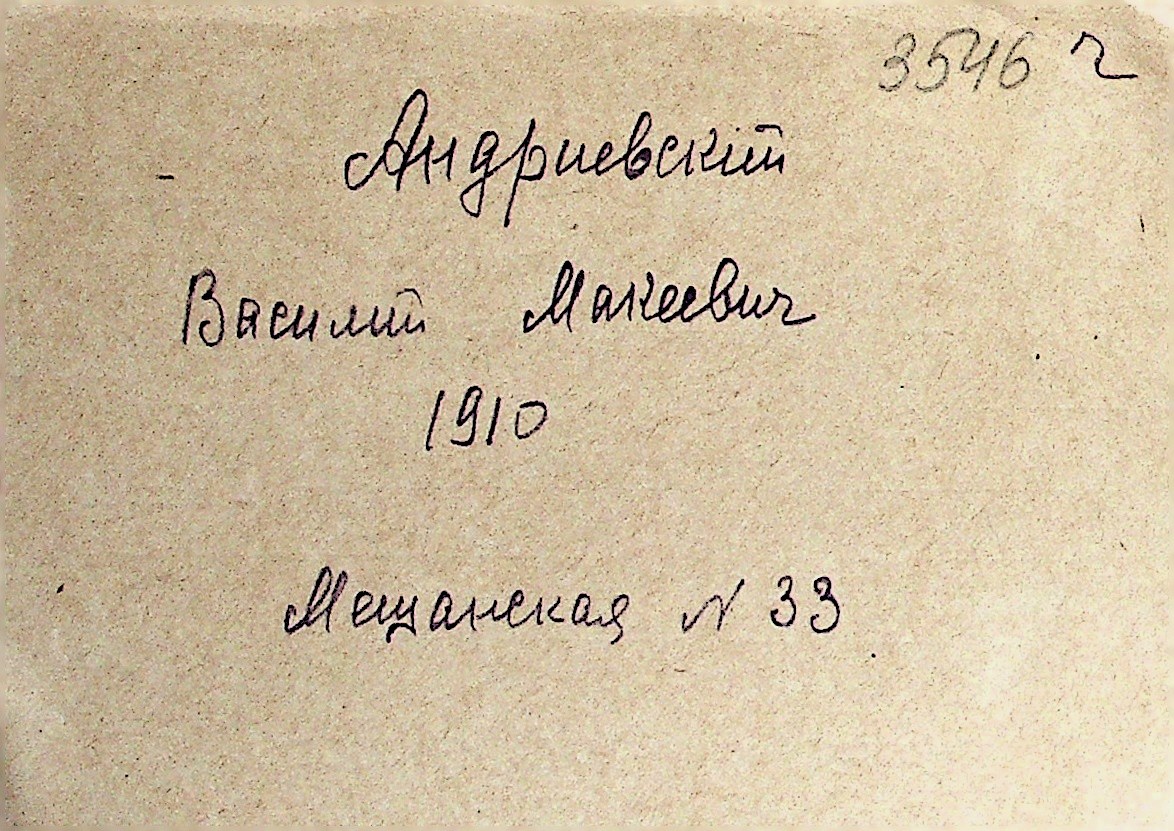 3546 ч
Андриевскій
Василий Макеевич
1910
Мещанская N 33